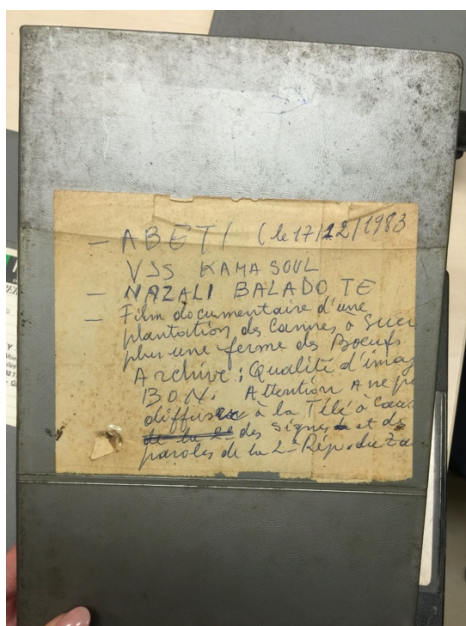 - ABETI (le 17/12/1983
VJS KAMA SOUL
- NAZALI BALADO TE
- Film documentaire d'une
plantation des Cannes à Sucr
plus une ferme des Boeufs
Archive : Qualité d'imag
BON. Attention A ne pa
diffuser à la Télé à Cau
des signes et de
paroles de la 2e Rép. du Za